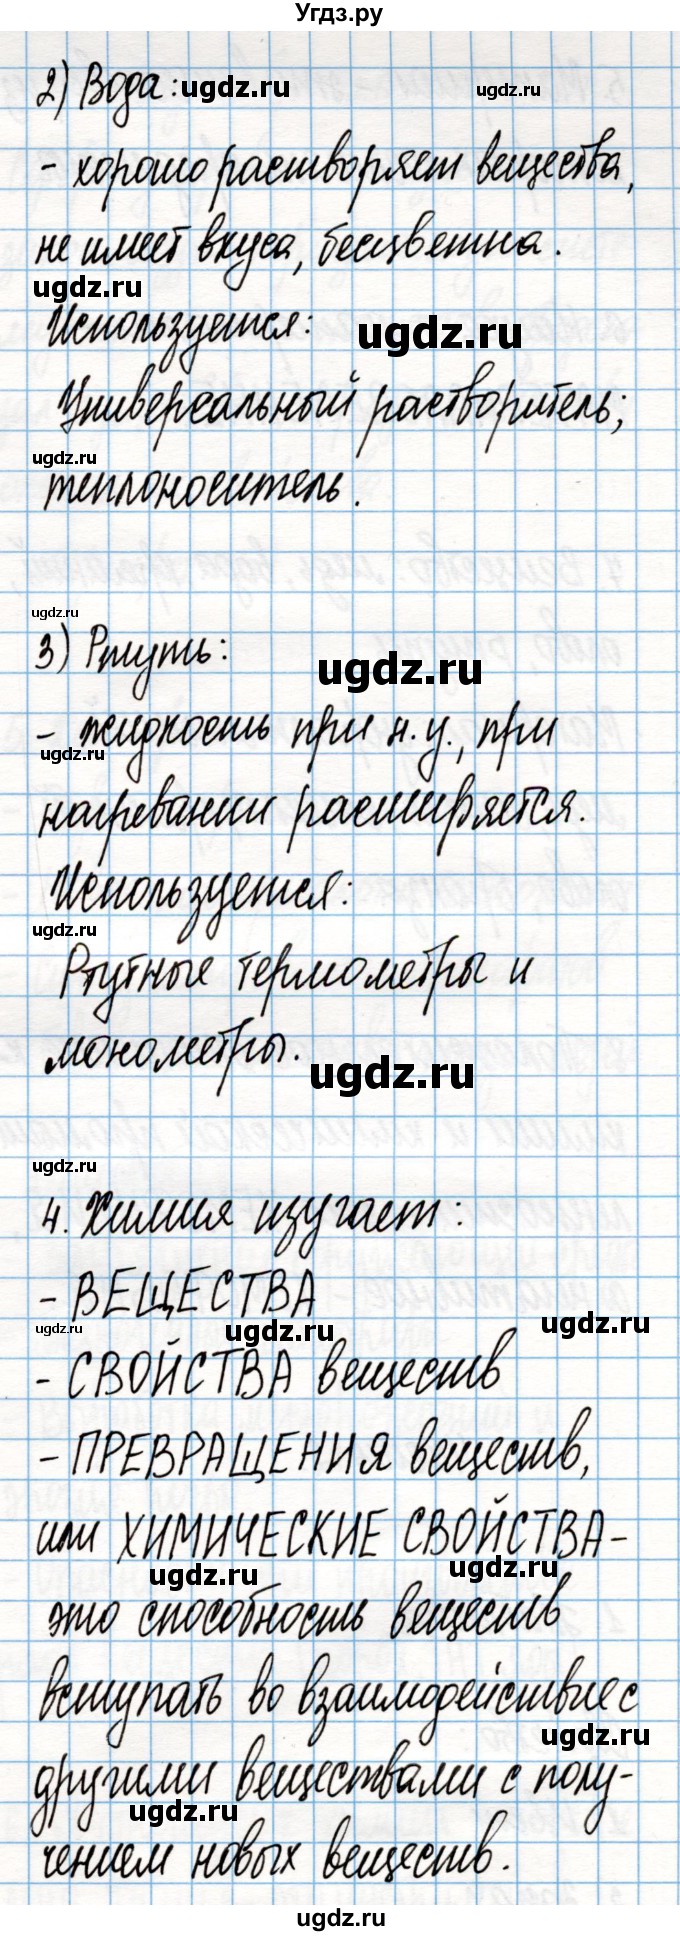 Угдз.ру
2) Вода: ugdz.ru ugdz.ru
- хорошо растворяет вещества,
не имеет вкуса, бесцветна.
ugdz.ru
Используется: ugdz.ru
Универсальный растворитель;
ugdz.ru
теплоноситель.
ugdz.ru
3) Ртуть: ugdz.ru
- жидкость при н.у., при
ugdz.ru
нагревании расширяется.
Используется:
ugdz.ru
Ртутные термометры и
монометры. ugdz.ru
ugdz.ru
4. Химия изучает:
- ВЕЩЕСТВА
ugdz.ru ugdz.ru ugdz.ru
- СВОЙСТВА веществ
- ПРЕВРАЩЕНИЯ веществ,
или ХИМИЧЕСКИЕ СВОЙСТВА -
ugdz.ru ugdz.ru
это способность веществ
вступать во взаимодействие с
ugdz.ru
другими веществами с полу-
ugdz.ru
чением новых веществ.
ugdz.ru